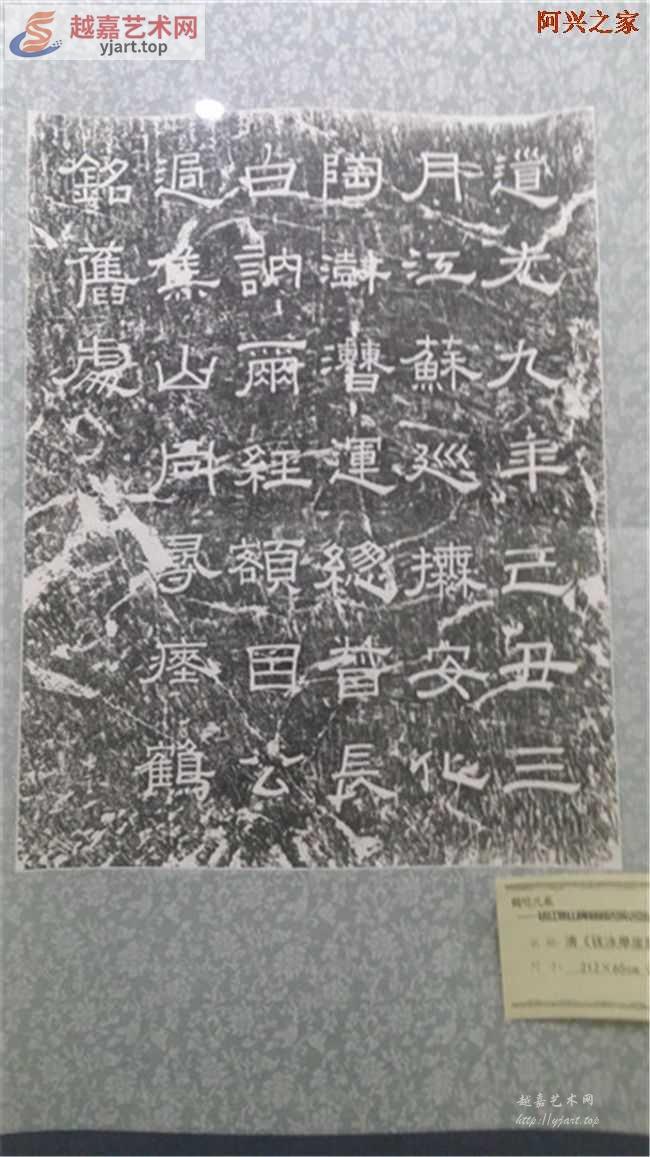 越嘉艺术网
yjart.top
阿兴之家
道光九年己丑三
月江蘇巡撫安化
陶澍漕運總督長
白訥爾經額因公
過焦山同尋瘞鶴
銘舊處
清《
尺寸:
212×60cm
越嘉艺术网
http://yjart.top